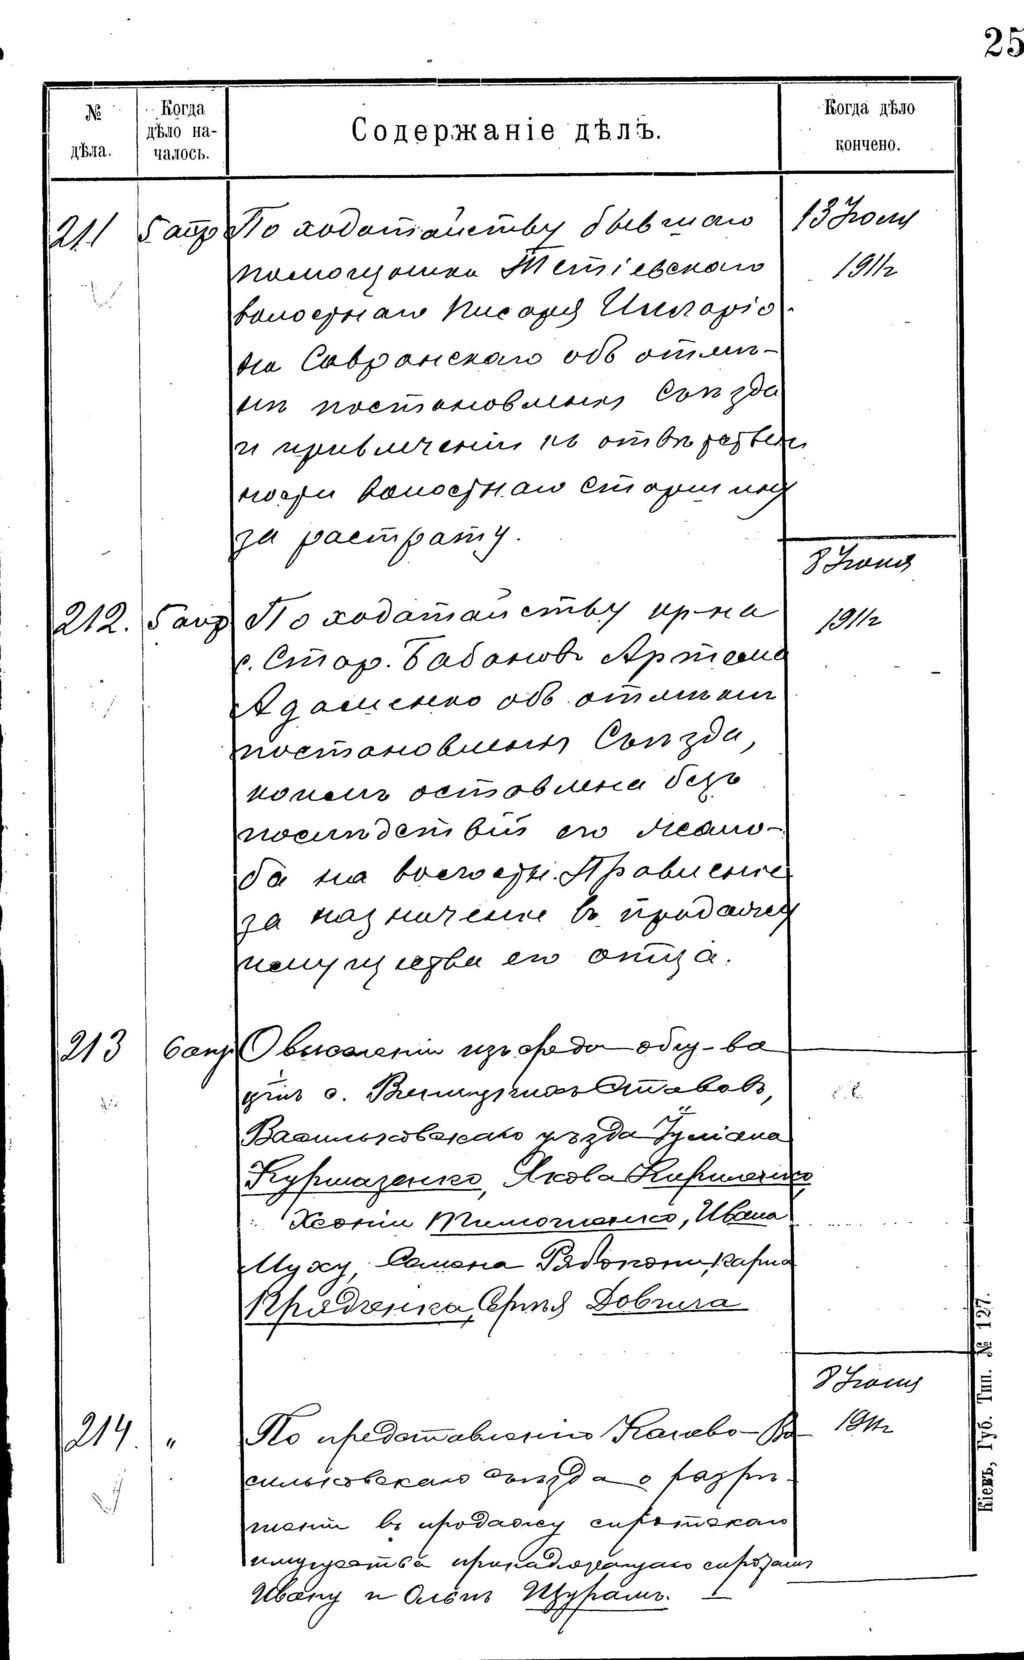 25
№ дѣла.
Когда дѣло началось.
Содержаніе дѣлъ.
Когда дѣло кончено.
211 5 апр По ходатайству бывшаго 13 Іюля
помощника Тетіевскаго 1911 г
волостнаго Писаря Иларіо-
на Савранскаго объ отмѣ-
нѣ постановленія Съѣзда
и привлеченіи къ отвѣтствен
ности волостнаго Старшину
за растрату.
8 Іюня
212. 5 апр По ходатайству кр-на 1911 г
с. Стар. Бабановъ Артема
Адаменко объ отмѣнѣ
постановленія Съѣзда,
коимъ оставлена безъ
послѣдствій его жало-
ба на волостн. Правленіе
за назначеніе въ продажу
имущества его отца.
213 6 апр О выселеніи изъ среды общ-ва
с. Винницкихъ Ставовъ,
Васильковскаго уѣзда Іуліана
Курмазенко, Якова Кириленко,
Ксенію Тимошенко, Ивана
Муху, Семена Рябоконя, Карпа
Крядченка, Сергѣя Довгича
8 Іюня
214. " По представленію Кіево-Ва 1911 г
сильковскаго съѣзда о разрѣ-
шеніи въ продажу сиротскаго
имущества принадлежащаго сиротамъ
Ивану и Ольгѣ Щурамъ.
Кіевъ, Губ. Тип. № 127.